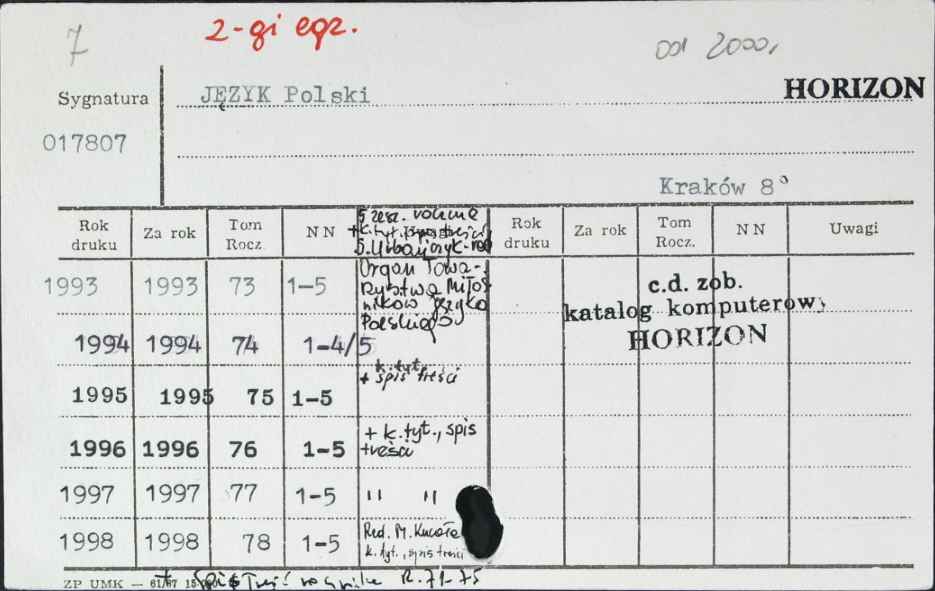 7
2-gi egz.
od 2000,
Sygnatura
JĘZYK Polski
HORIZON
017807
Kraków 8°
Rok druku
Za rok
Tom Rocz.
NN
5 zesz. rocznie
+ k. tyt.
S. Urbańczyk - red
Rok druku
Za rok
Tom Rocz.
NN
Uwagi
1993 1993 73 1-5
Organ Towa-
rzystwa Miłoś
ników Języka
Polskiego
c.d. zob.
katalog komputerowy
HORIZON
1994 1994 74 1-4/5
1995 1995 75 1-5
k. tyt.
+ spis treści
1996 1996 76 1-5
+ k. tyt., spis
treści
1997 1997 77 1-5 " "
1998 1998 78 1-5
Red. M. Kucała
k. tyt., spis treści
ZP UMK — 61/67
+ spis treści rocznika R. 71-75